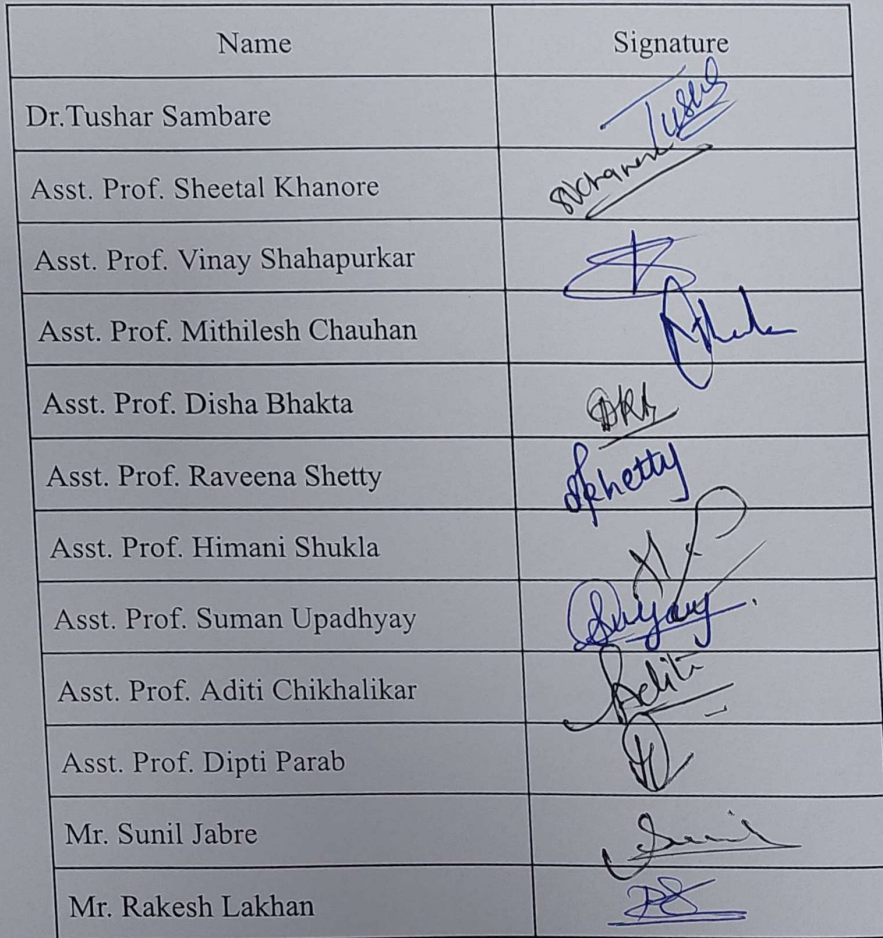 Name Signature
Dr.Tushar Sambare Tushar
Asst. Prof. Sheetal Khanore
Asst. Prof. Vinay Shahapurkar
Asst. Prof. Mithilesh Chauhan
Asst. Prof. Disha Bhakta
Asst. Prof. Raveena Shetty
Asst. Prof. Himani Shukla
Asst. Prof. Suman Upadhyay
Asst. Prof. Aditi Chikhalikar Aditi
Asst. Prof. Dipti Parab
Mr. Sunil Jabre Sunil
Mr. Rakesh Lakhan